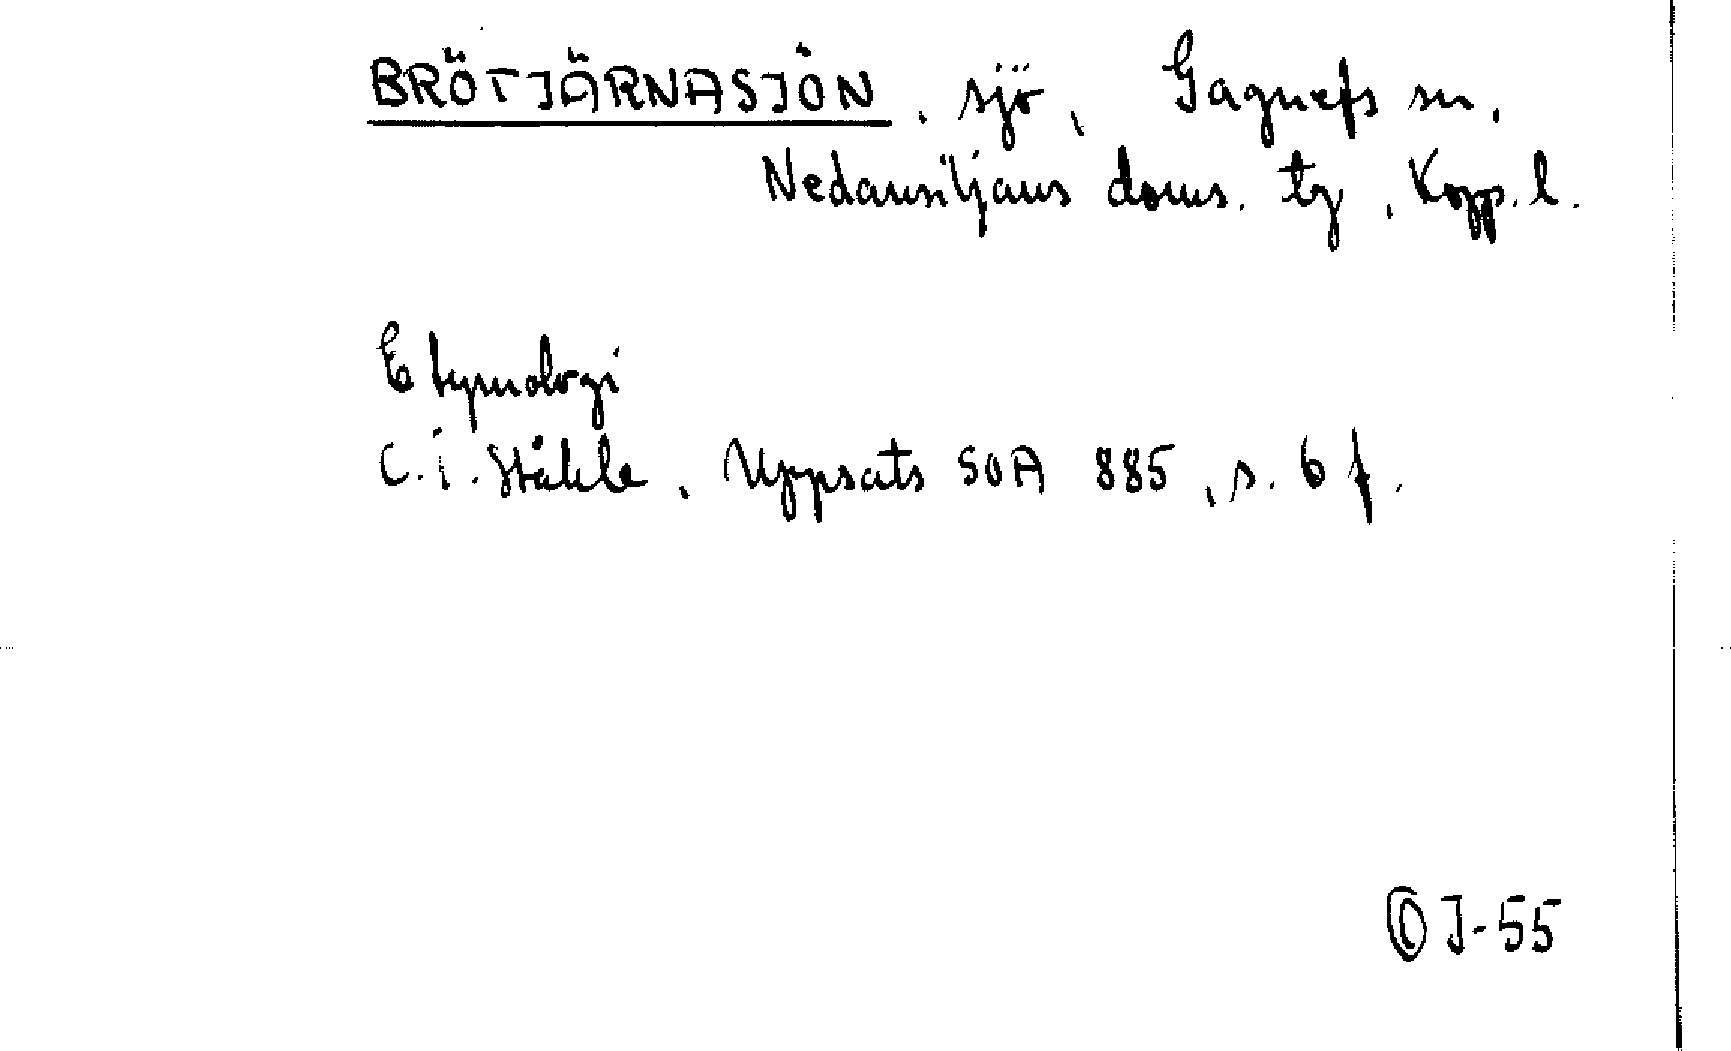 BRÖTJÄRNASJÖN, sjö, Gagnefs sn,
Nedansiljans doms. tg, Kopp. l.
Etymologi
C. I. Ståhle, Uppsats SOA 885, s. 6 f.
J-55